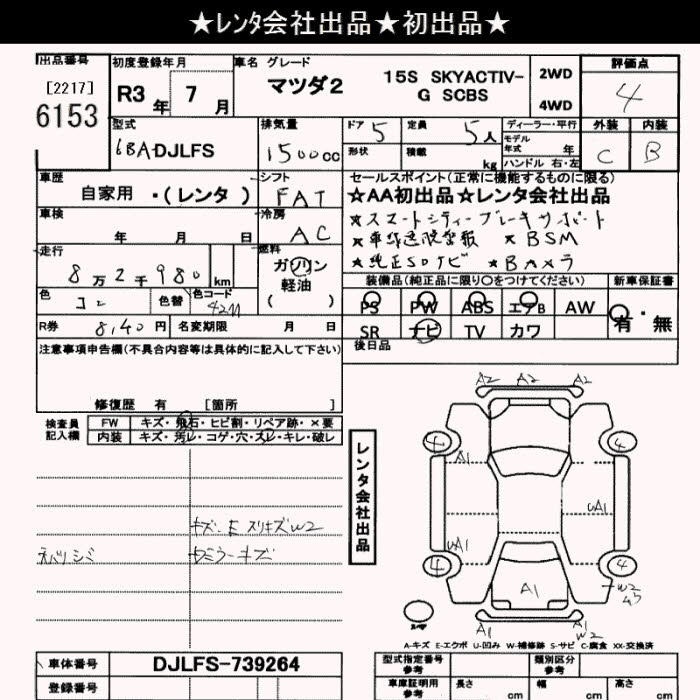 ★レンタ会社出品★初出品★
出品番号
[2217]
6153
初度登録年月
R3 年 7 月
車名 グレード
マツダ2
15S SKYACTIV-
G SCBS
2WD
4WD
評価点
4
外装 内装
C B
型式
6BA-DJLFS
排気量
1500cc
ドア 5
定員 5人
形状
積載 kg
ディーラー・平行
モデル
年式 年
ハンドル 右・左
車歴
自家用 ・(レンタ )
シフト
FAT
車検
年 月 日
冷房
AC
走行
8万2千980 km
燃料
ガソリン
軽油
( )
色
コン
色替
色コード
42M
R券 8,140円
名変期限 月 日
セールスポイント(正常に機能するものに限る)
☆AA初出品★レンタ会社出品
★スマートシティーブレーキサポート
★車線逸脱警報 ★BSM
★純正SDナビ ★Bカメラ
装備品(純正品に限り○をつけてください)
新車保証書
PS PW ABS エアB AW
有・無
SR ナビ TV カワ
後日品
注意事項申告欄(不具合内容等は具体的に記入して下さい)
修復歴 有 [箇所 ]
検査員
記入欄
FW キズ・飛石・ヒビ割・リペア跡・×要
内装 キズ・汚レ・コゲ・穴・スレ・キレ・破レ
レンタ会社出品
A2 A2 A2
4 4
A1
uA1
uA1
4 4
A1
W2
A1 A1
W2
A-キズ E-エクボ U-凹み W-補修跡 S-サビ C-腐食 XX-交換済
車体番号 DJLFS-739264
登録番号
型式指定番号
参考
類別区分
参考
車庫証明用
参考
長さ cm
幅 cm
高さ cm